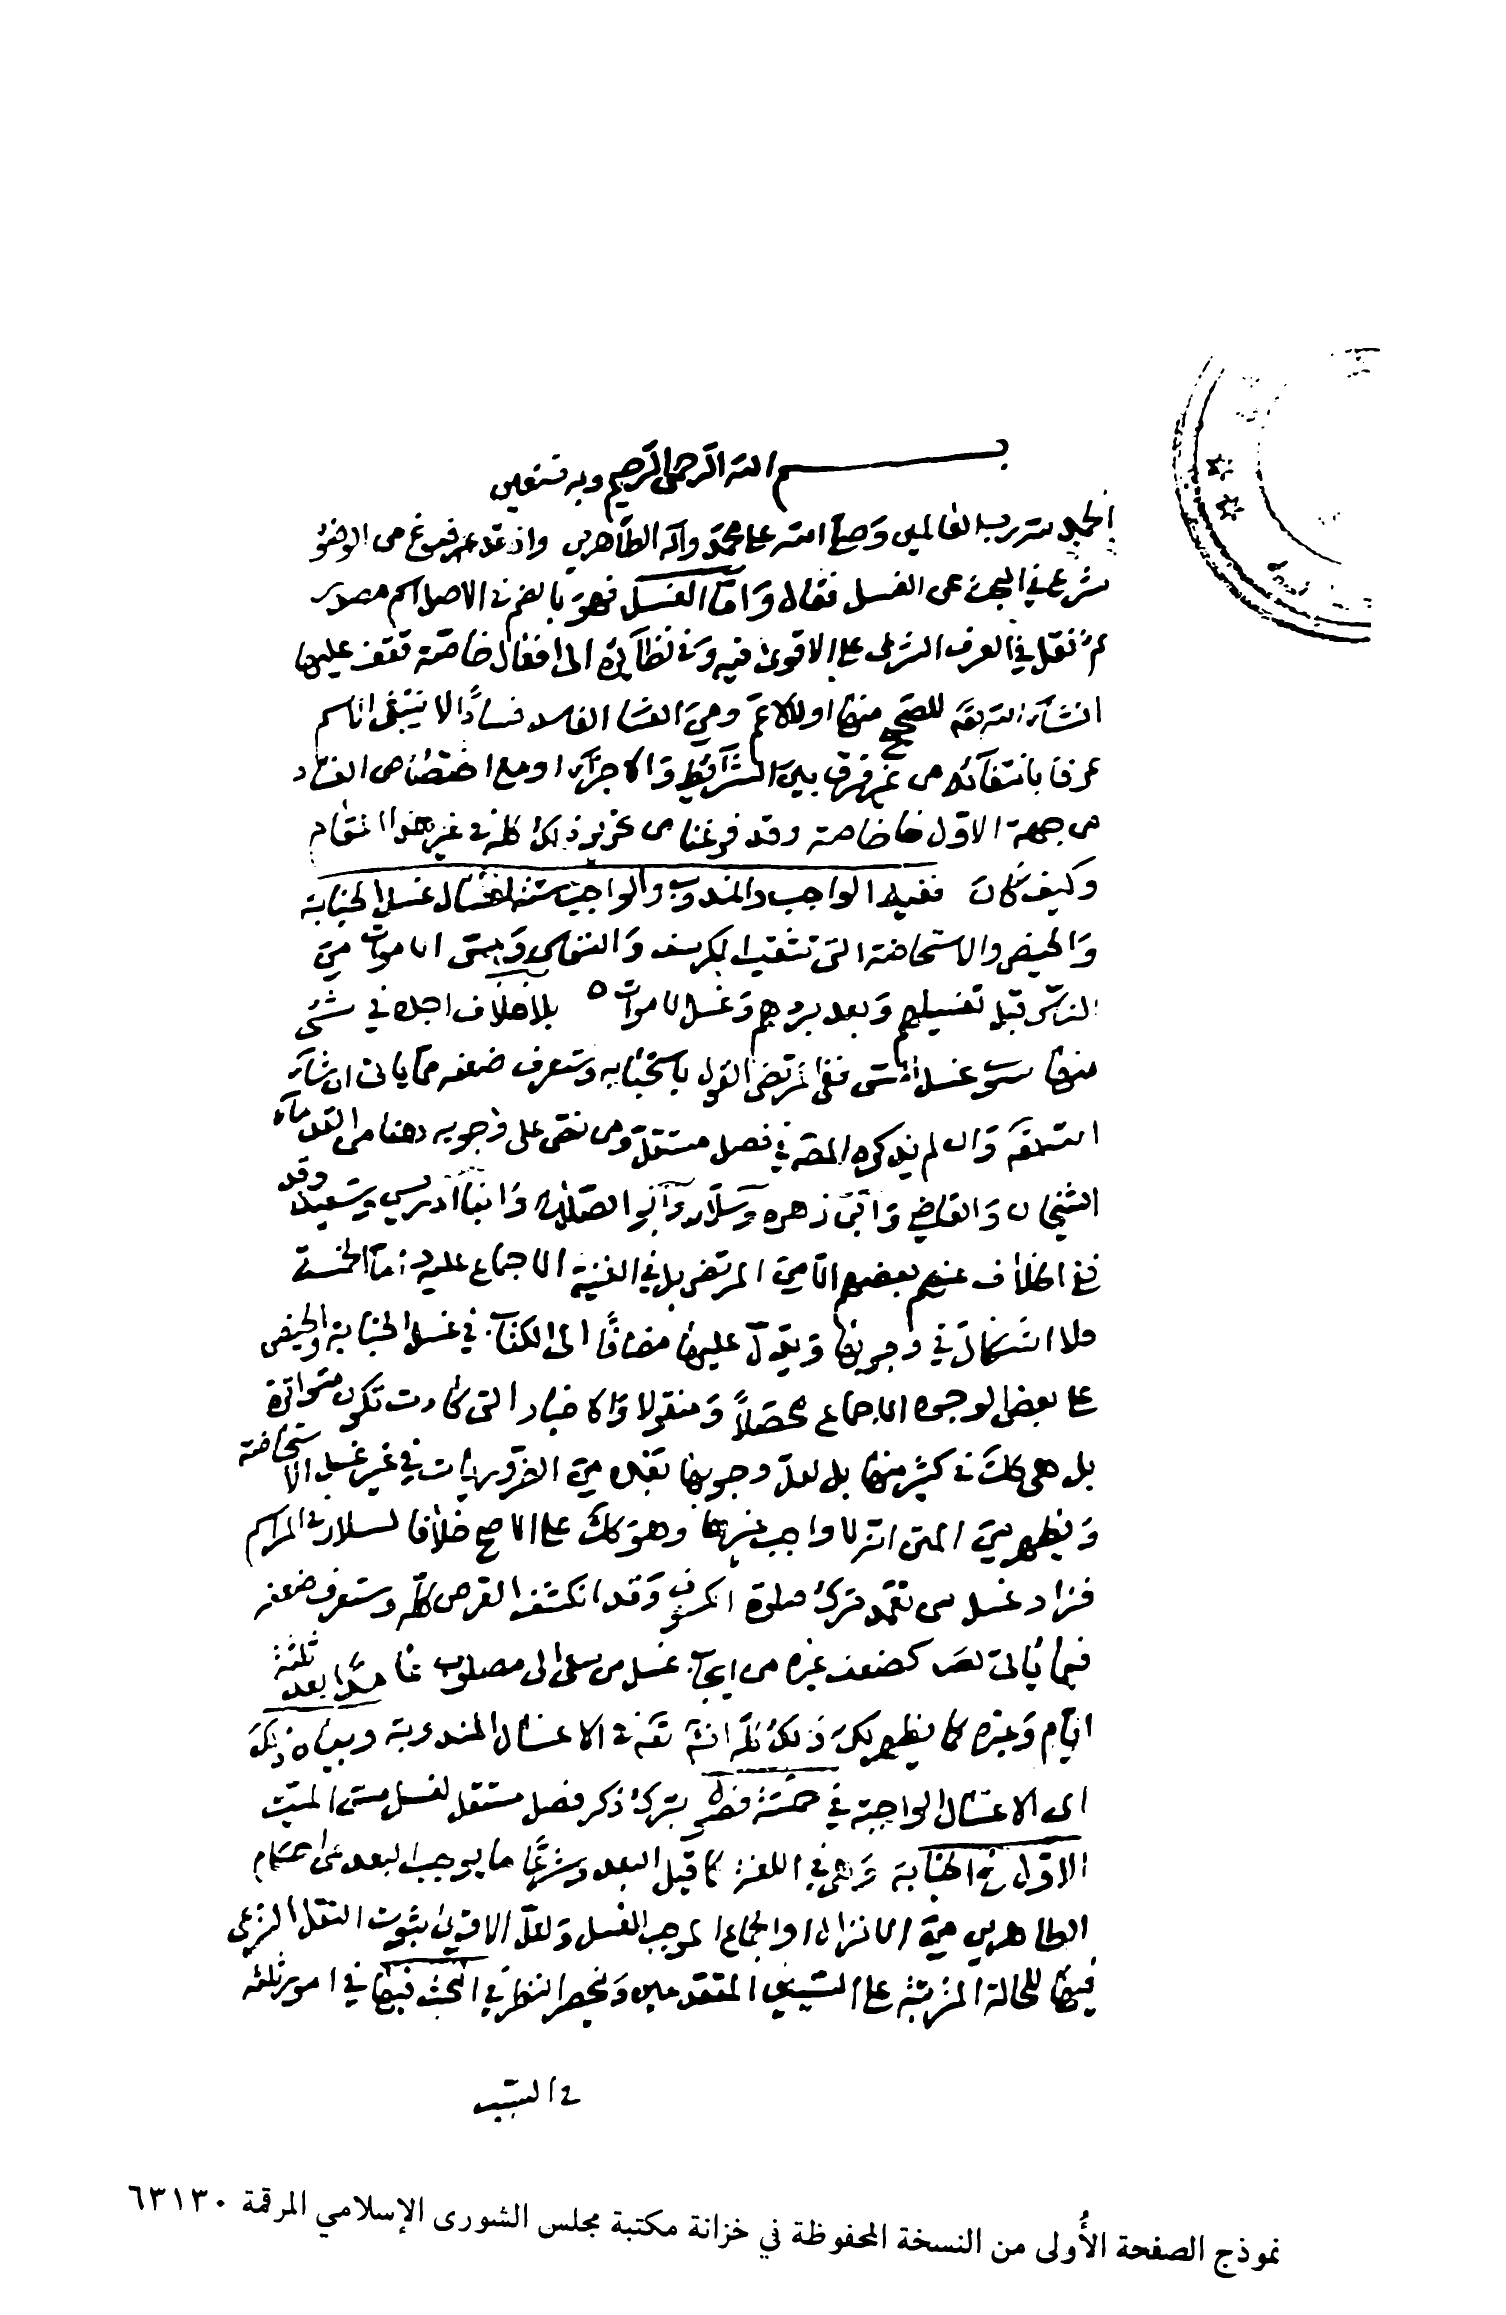 بسم الله الرحمن الرحيم وبه نستعين
الحمد لله رب العالمين وصلى الله على محمد وآله الطاهرين واذ قد فرغ من الوضوء
شرع في البحث عن الغسل فقال وامّا الغسل فهو بالضم في الاصل اسم مصدر
ثم نقل في العرف الشرعي على الاقوى فيه وفي نظائره الى افعال خاصّة تقف عليها
انشاء الله تعه للصحيح منها او للاعم ومن الفاسد فسادًا لا ينتفى الاسم
عرفا بانتفائه من غير فرق بين الشرائط والاجزاء او مع اختصاص الفساد
من جهة الاول خاصة وقد فرغنا من تحرير ذلك كله في غير هذا المقام
وكيف كان ففيه الواجب والمندوب والواجب ستة اغسال غسل الجنابة
والحيض والاستحاضة التي تثقب الكرسف والنفاس ومس الاموات من
الناس قبل تغسيلهم وبعد بردهم وغسل الاموات ٥ بلا خلاف اجده في شئ
منها سوى غسل المس فعن المرتضى القول باستحبابه وستعرف ضعفه مما ياتي ان شاء
الله تعه وان لم يذكره المصه في فصل مستقل وممن نص على وجوبه هنا من القدماء
الشيخان والقاضي وابن زهره وسلار وابو الصلاح وابنا ادريس وسعيد وقد
نفى الخلاف عنه بعضهم الا من المرتضى بل في الغنية الاجماع عليه واما الخمسة
فلا اشكال في وجوبها ويدل عليها مضافًا الى الكتاب في غسل الجنابة والحيض
على بعض الوجوه الاجماع محصلاً ومنقولا والاخبار التي كادت تكون متواترة
بل هي كك في كثير منها بل لعل وجوبها يعد من الضروريات في غير غسل الاستحاضة
ويظهر من المتن انه لا واجب غيرها وهو كك على الاصح خلافا لسلار في المراسم
فزاد غسل من تعمد ترك صلوة الكسوف وقد انكسف القرص كله وستعرف ضعفه
فيما ياتي كضعف غيره من ايجاب غسل من سعى الى مصلوب عامدًا بعد ثلثة
ايام وغيره كما يظهر لك ذلك كله انشه تعه في الاغسال المندوبة وبيان ذلك
اى الاغسال الواجبة في خمسة فصول بترك ذكر فصل مستقل لغسل مس الميت
الاول في الجنابة وهي في اللغة كما قيل البعد وشرعًا ما يوجب البعد عن احكام
الطاهرين من الانزال او الجماع الموجب الغسل ولعل الاقوى ثبوت النقل الشرعي
فيها للحالة المترتبة على السببين المتقدمين وينحصر النظر في البحث فيها في امور ثلثه
في السبب
نموذج الصفحة الأُولى من النسخة المحفوظة في خزانة مكتبة مجلس الشورى الإسلامي المرقمة ٦٣١٣٠